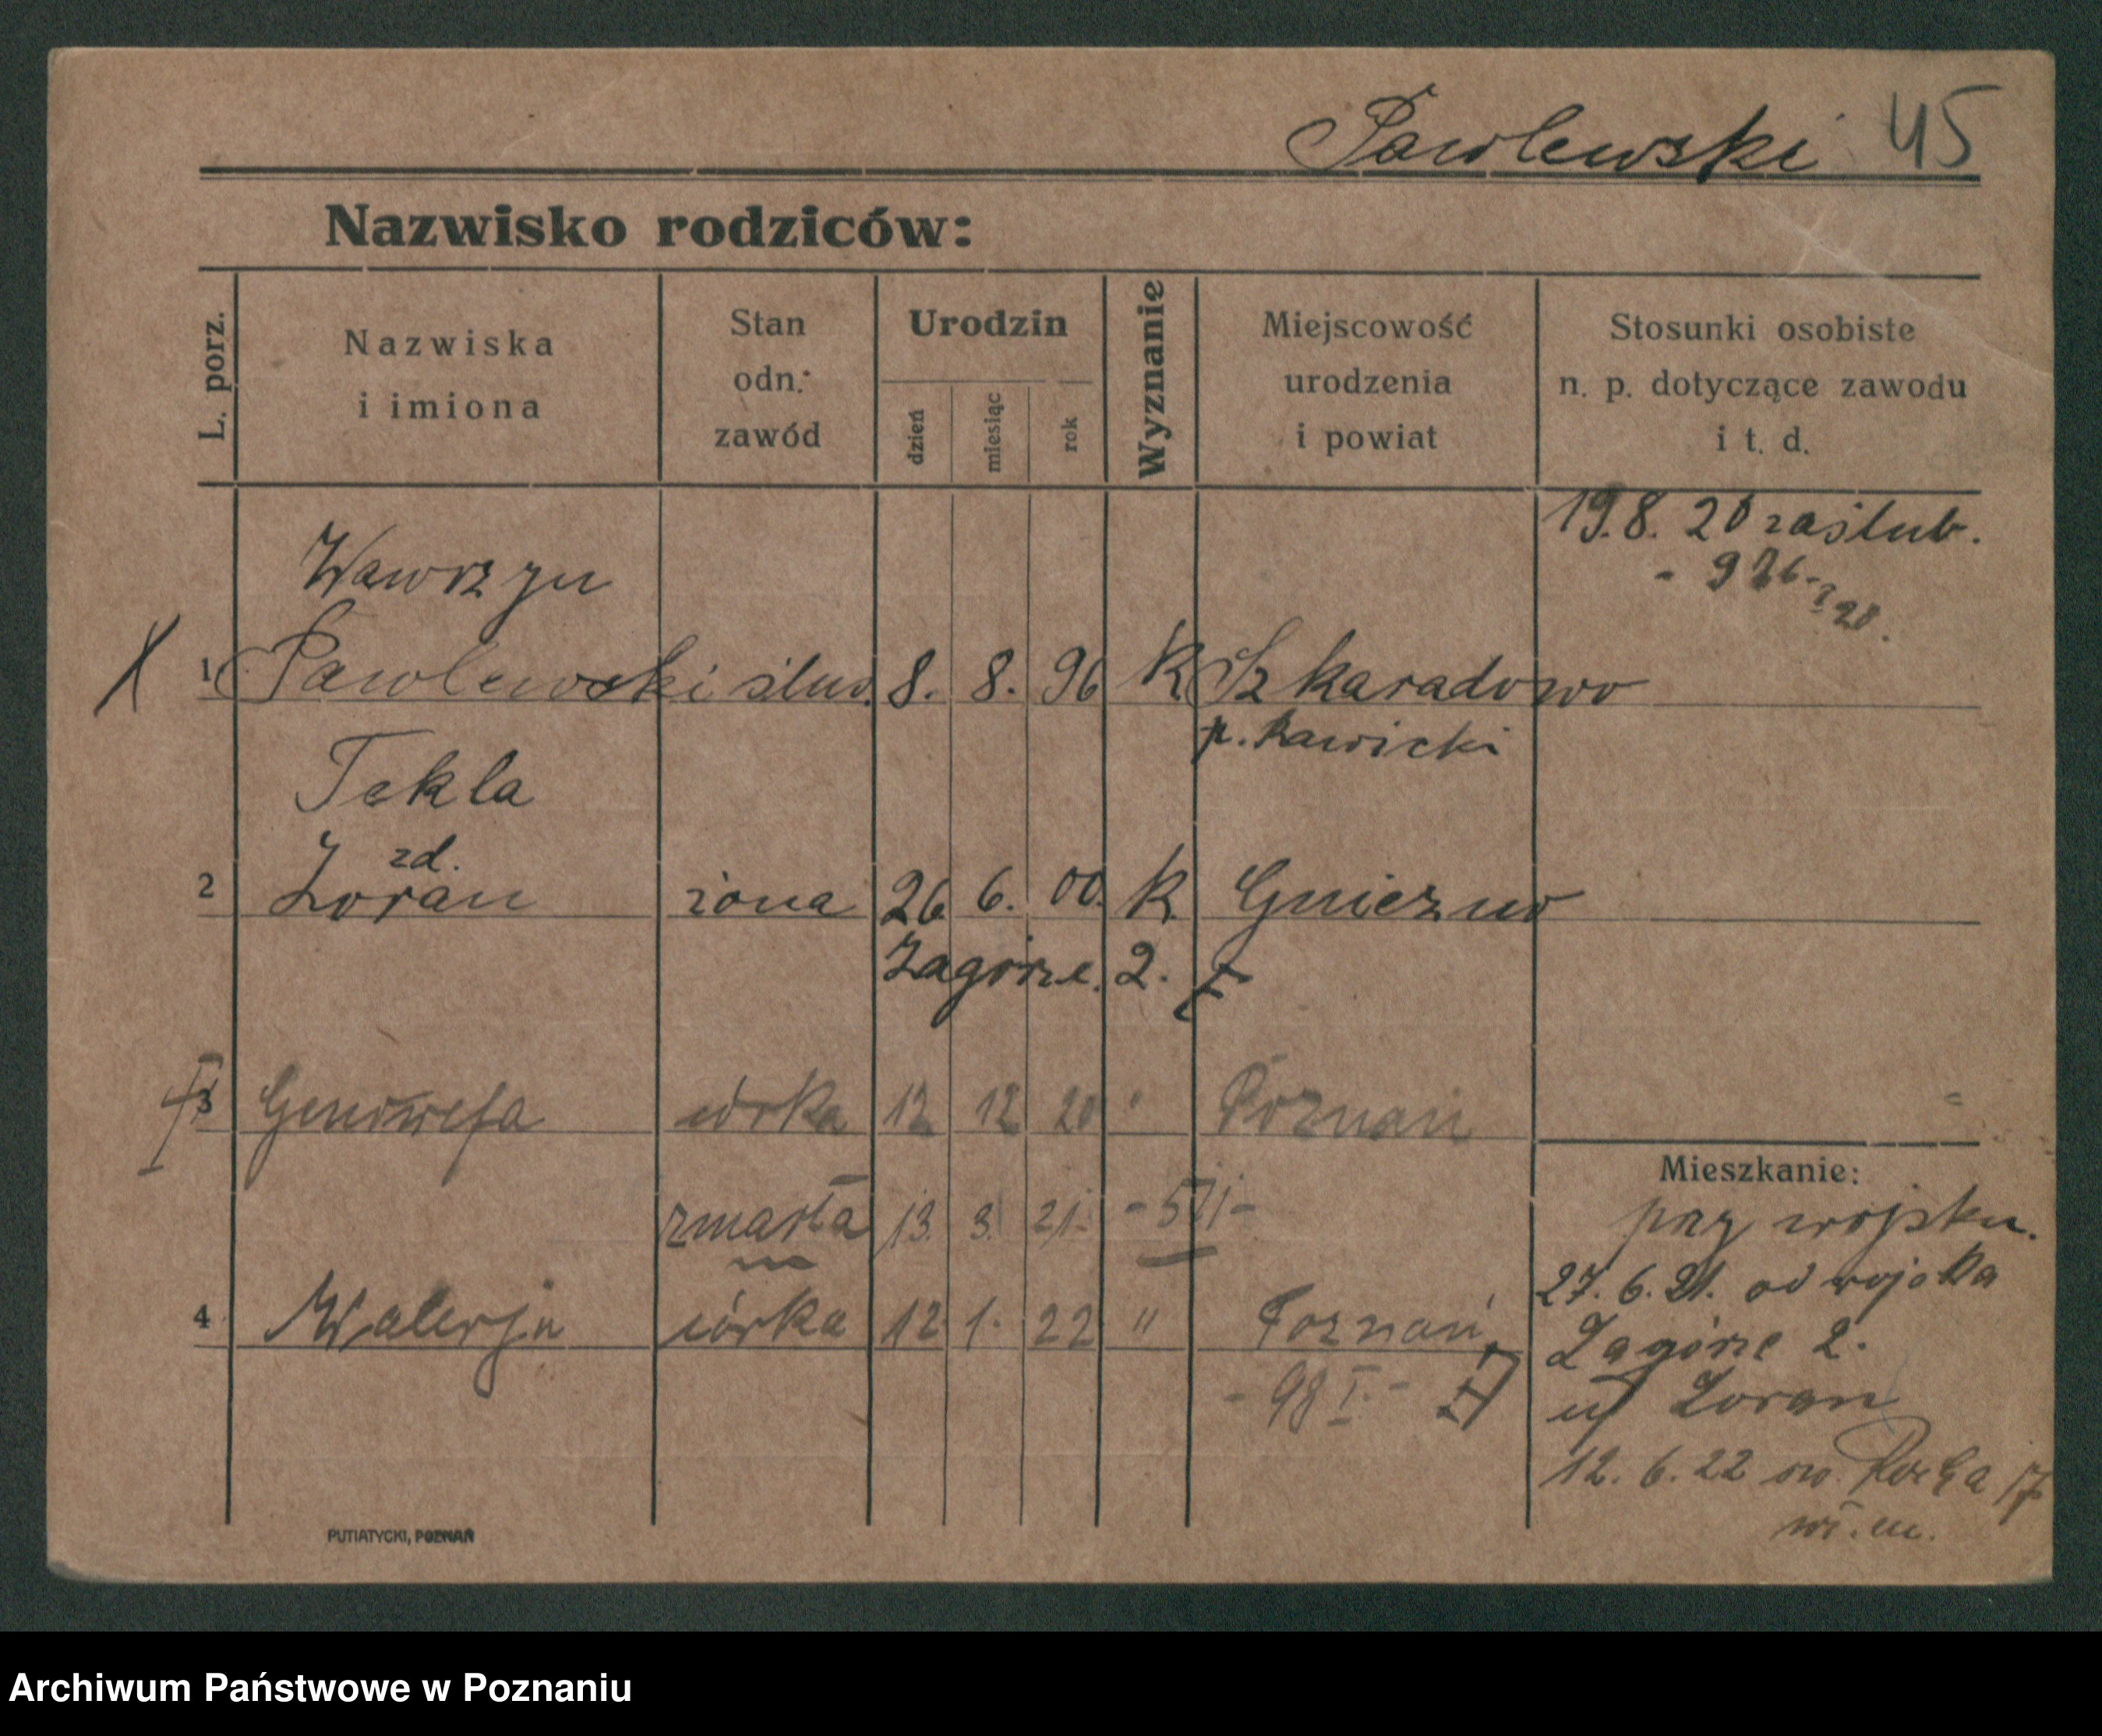 Pawlewski 45
Nazwisko rodziców:
L. porz.
Nazwiska
i imiona
Stan
odn.
zawód
Urodzin
dzień
miesiąc
rok
Wyznanie
Miejscowość
urodzenia
i powiat
Stosunki osobiste
n. p. dotyczące zawodu
i t. d.
19.8. 20 zaślub.
Wawrzyn
1 Pawlewski ślus. 8. 8. 96 K Szkaradowo
p. Rawicki
Tekla
zd.
2 Zoran żona 26 6. 00. K Gniezno
Zagórze. 2.
3 Genowefa córka 12 12 20 " Poznań
zmarła 13. 3. 21.
4 Walerja córka 12 1. 22 " Poznań
- 98 I. -
Mieszkanie:
przy wojsku.
27. 6. 21. od wojska
Zagórze 2.
u/ Zoran
12. 6. 22 św. Rocha 17
wł. m.
PUTIATYCKI, POZNAŃ
Archiwum Państwowe w Poznaniu